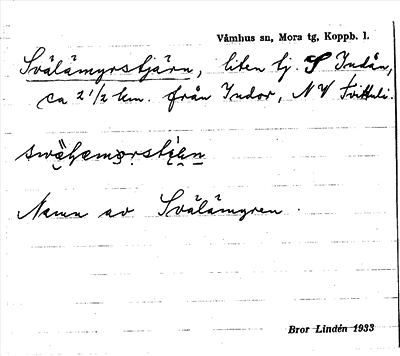 Våmhus sn, Mora tg, Koppb. l.
Svälämyrstjärn, liten tj. S Indån,
ca 2 1/2 km. från Indor, NV
Namn av Svälämyren.
Bror Lindén 1933